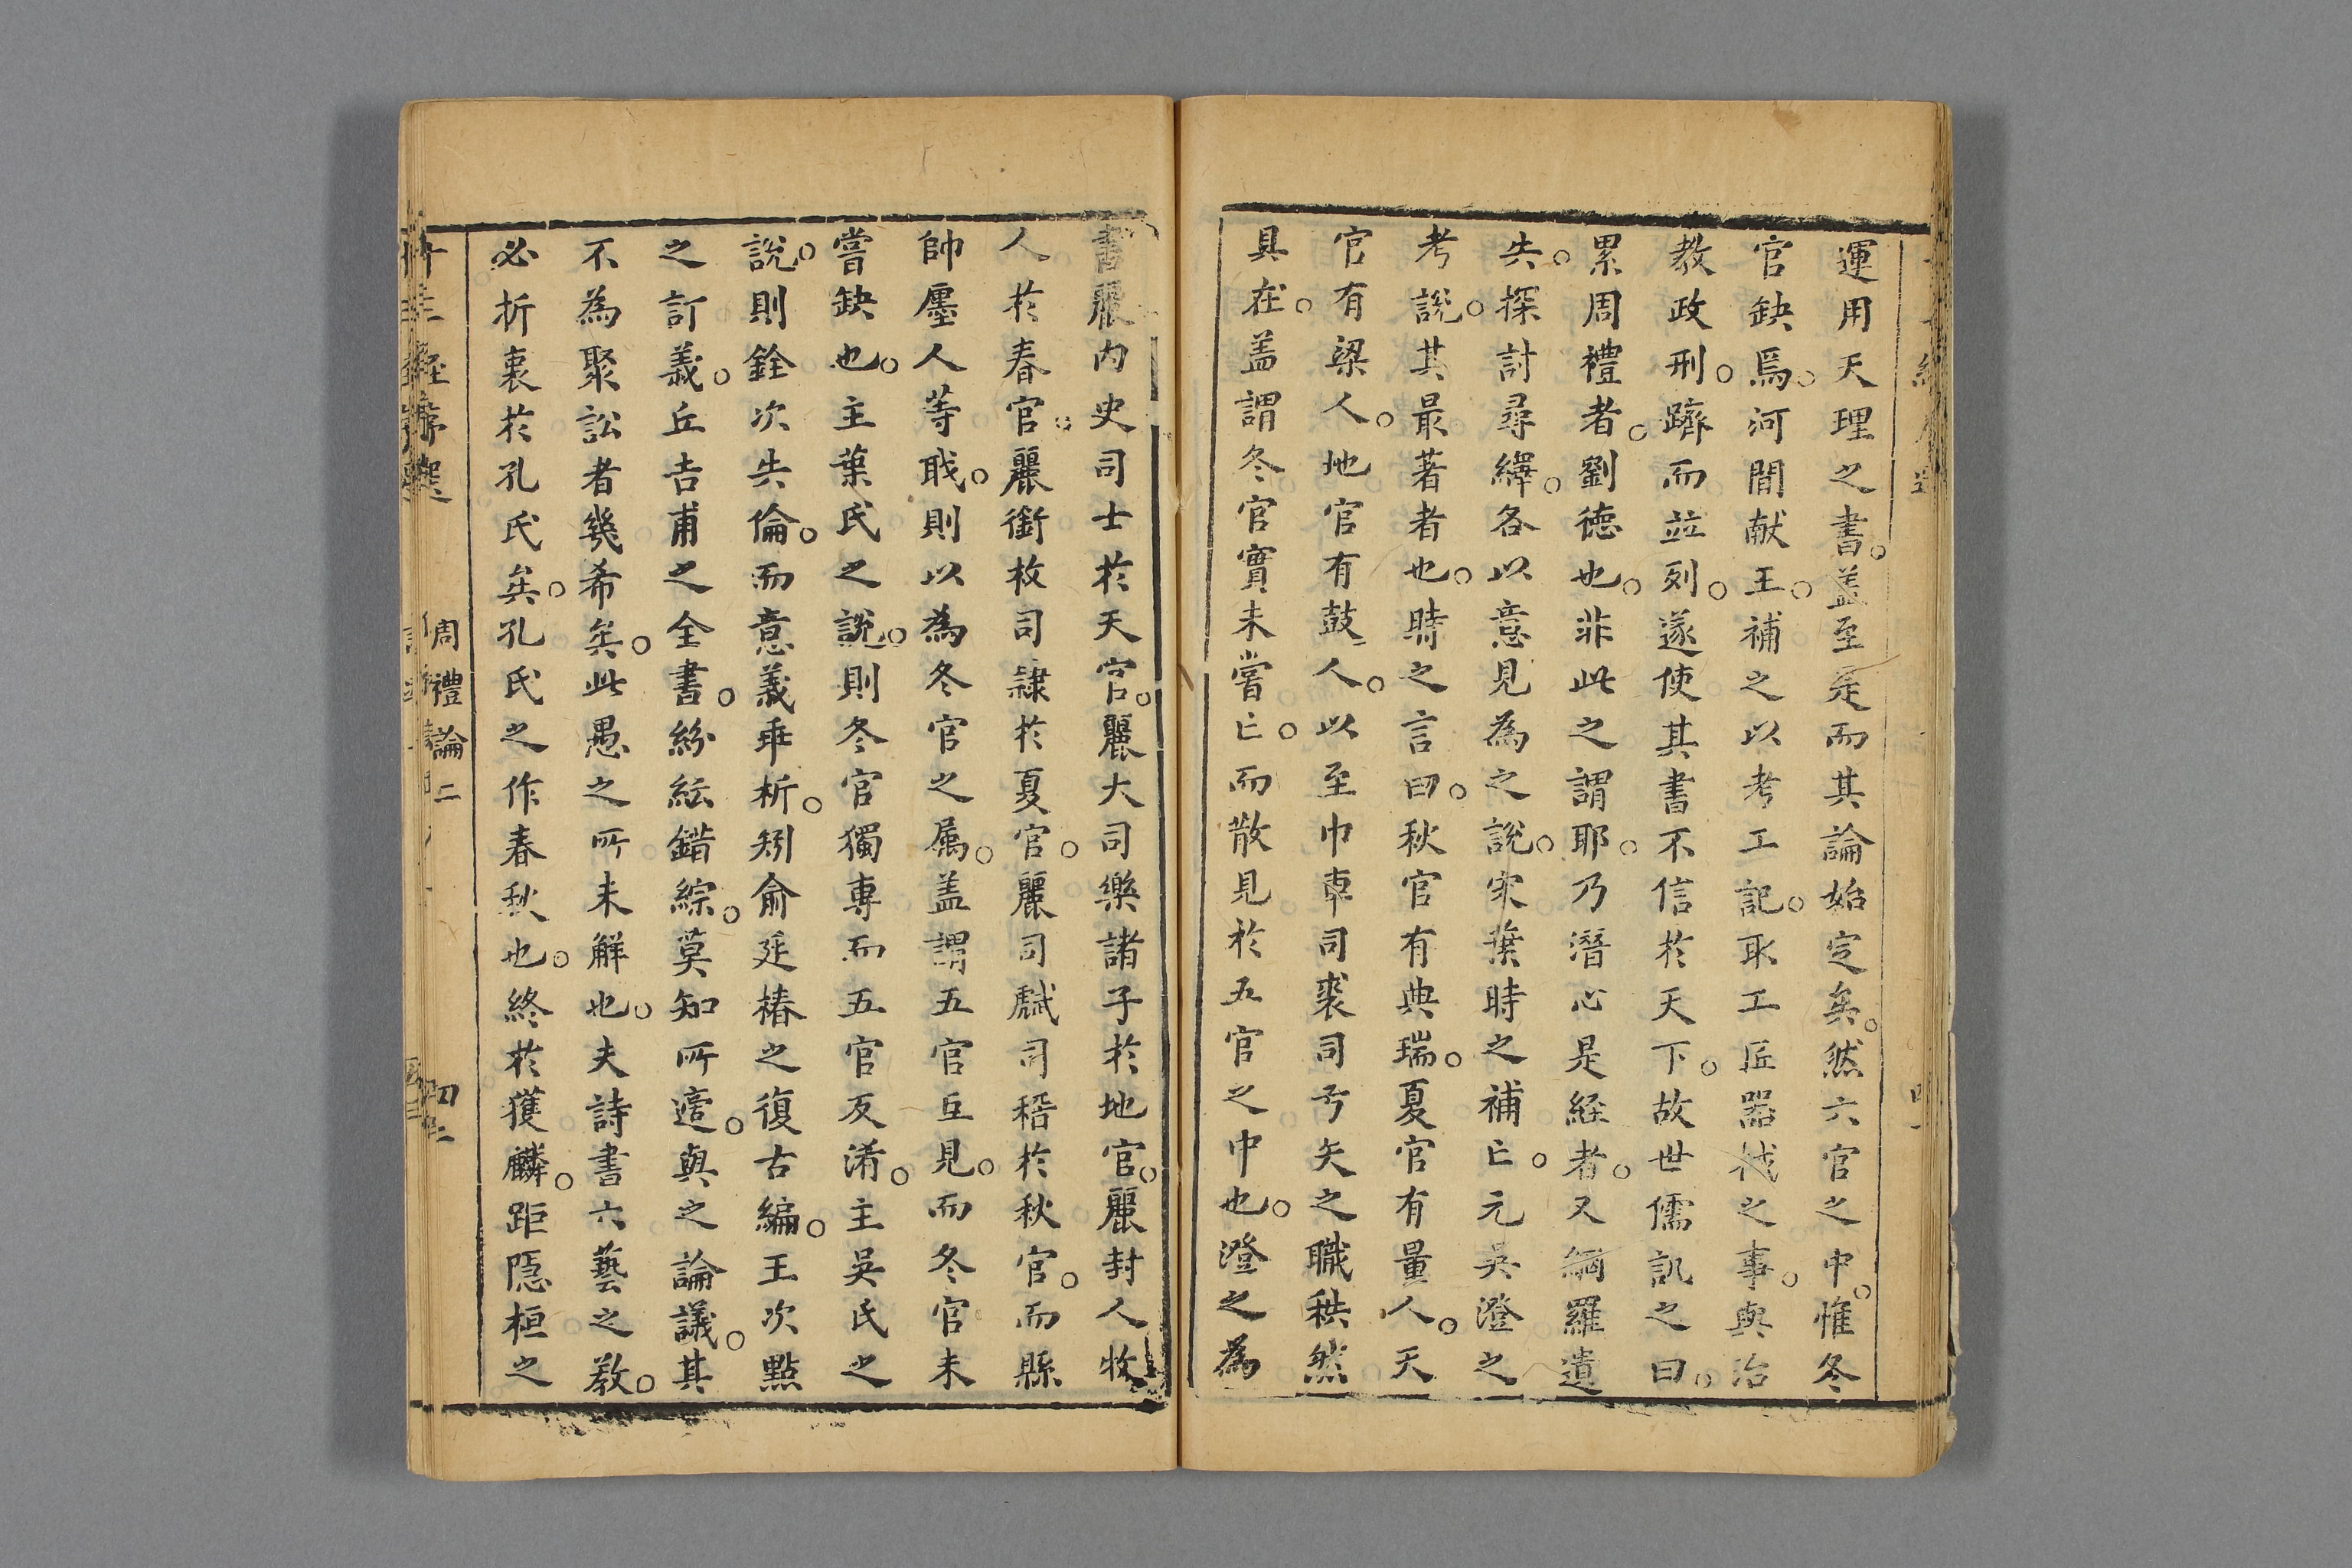 運用天理之書。盖至是而其論始定矣。然六官之中。惟冬
官缺焉。河間献王。補之以考工記。取工匠器械之事。與治
教政刑。躋而並列。遂使其書不信於天下。故世儒訊之曰。
累周禮者。劉徳也。非此之謂耶。乃潛心是経者。又網羅遺
失。探討尋繹。各以意見為之說。宋葉時之補亡。元吳澄之
考說。其最著者也。時之言曰。秋官有典瑞。夏官有量人。天
官有梁人。地官有鼓人。以至巾車司裘司弓矢之職秩然
具在。盖謂冬官實未嘗亡。而散見於五官之中也。澄之為
書麗内史司士於天官。麗大司樂諸子於地官。麗封人牧
人於春官。麗銜枚司隷於夏官。麗司虣司稽於秋官。而縣
師廛人等职。則以為冬官之属。盖謂五官互見。而冬官未
嘗缺也。主葉氏之說。則冬官獨專而五官反淆。主吳氏之
說。則銓次失倫。而意義乖析。矧俞延椿之復古編。王次點
之訂義。丘吉甫之全書。紛紜錯綜。莫知所適。與之論議。其
不為聚訟者幾希矣。此愚之所未解也。夫詩書六藝之教。
必折衷於孔氏矣。孔氏之作春秋也。終於獲麟。距隱桓之
十三経序選
周禮論二